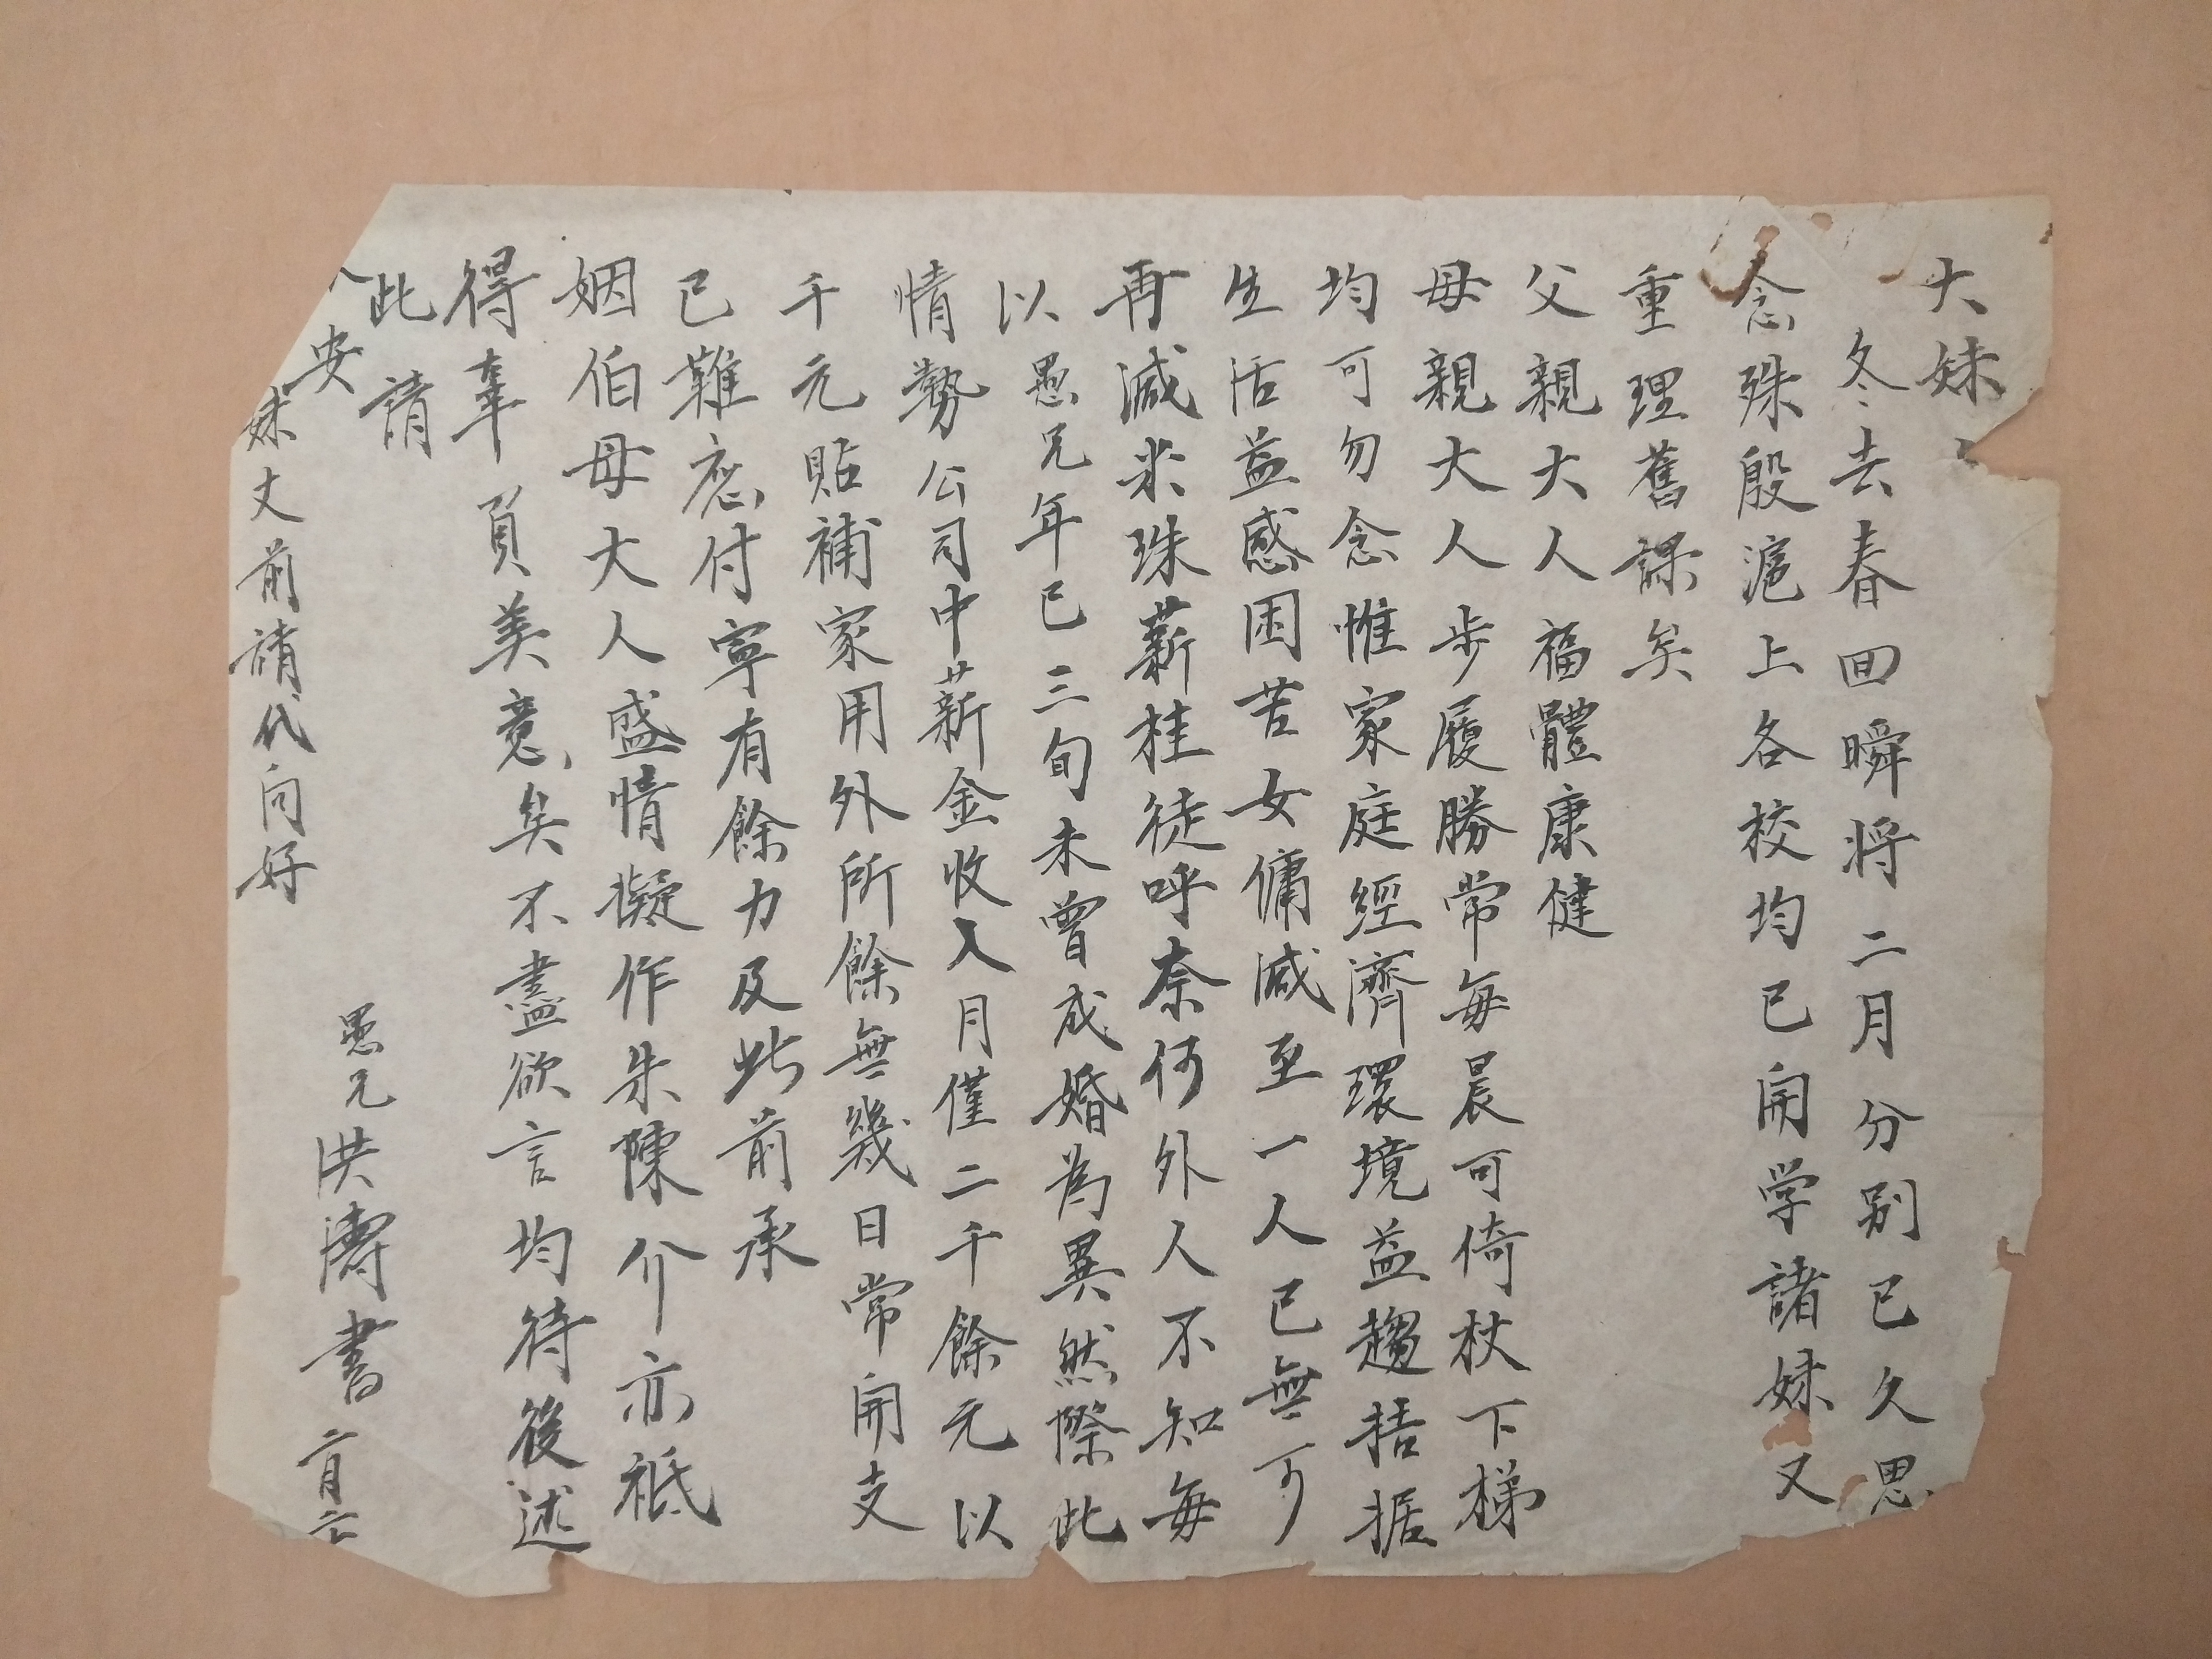 大妹
冬去春回瞬将二月分别已久思
念殊殷滬上各校均已開学諸妹又
重理舊課矣
父親大人福體康健
母親大人步履勝常每晨可倚杖下梯
均可勿念惟家庭經濟環境益趨拮据
生活益感困苦女傭减至一人已無可
再减米珠薪桂徒呼奈何外人不知每
以愚兄年已三旬未曾成婚為異然際此
情勢公司中薪金收入月僅二千餘元以
千元貼補家用外所餘無幾日常開支
已難應付寧有餘力及此前承
姻伯母大人盛情擬作朱陳介亦祗
得辜負美意矣不盡欲言均待後述
此請
安
愚兄洪濤書 二月
妹丈前請代问好